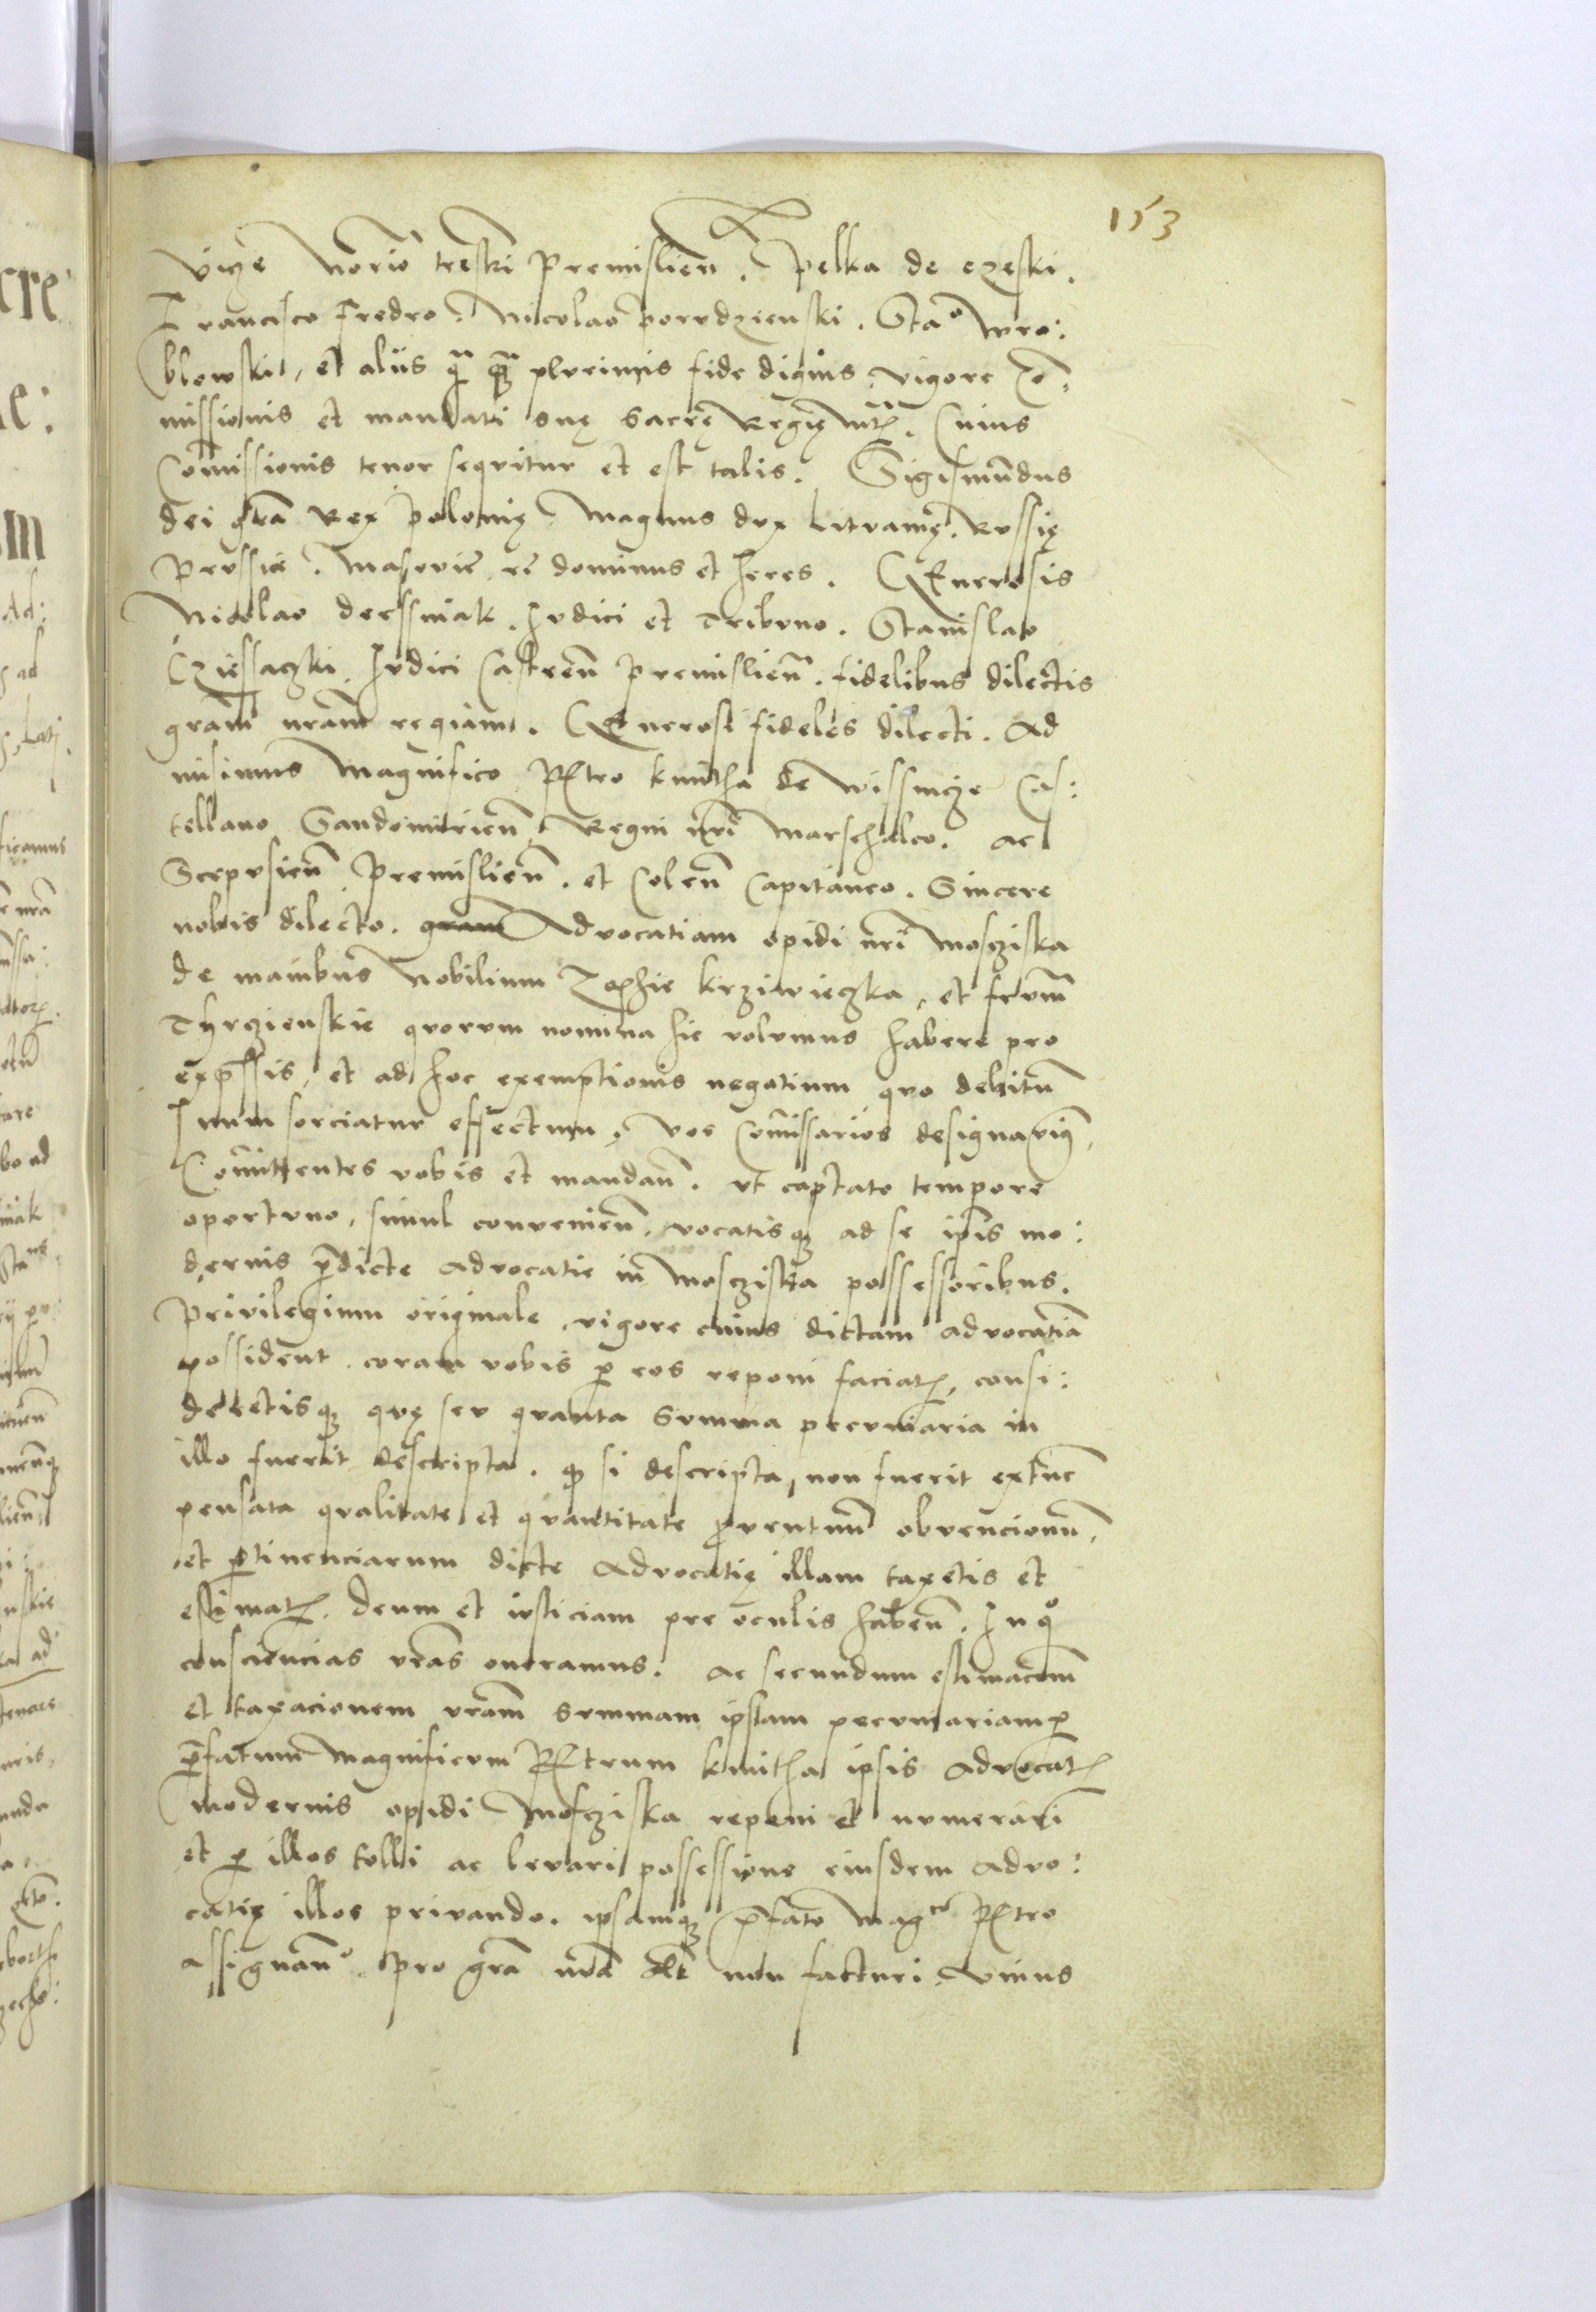 153
vicze Norio trestri Premislien. Pelka de czeski.
Francisco Fredro. Nicolao porudzienski. Sta° wro:
blowski, et aliis qm plurimis fide dignis, vigore Co:
missionis et mandati suę Sacrę Regię mtis. Cuius
Comissionis tenor sequitur et est talis. Sigismundus
dei gra Rex polonię. Magnus dux Lituanię. Russię
Prussie. Masovie rc dominus et heres. Generosis
Nicolao derssniak. Iudici et Tribuno. Stanislao
Cziessaczki Iudici Castren Premislien. fidelibus dilectis
gram nram regiam. Generosi fideles dilecti. Ad
misimus Magnifico Petro kmitha de Wissnicze Cas:
tellano Sandomirien, Regni nri Marschalco. ac
Scepusien Premislien. et Colen Capitaneo. Sincere
nobis dilecto. gram Advocatiam opidi nri Moscziska
de manibus Nobilium Zophie krziwieczka, et frum
Tyrzienskie quorum nomina hic volumus habere pro
expssis, et ad hoc exemptionis negotium quo debitum
suum sorciatur effectum, vos Comissarios designavimus,
Comittentes vobis et mandan. ut captato tempore
oportuno, simul convenien. vocatisq ad se ipis mo:
dernis pdicte advocatie in Moscziska possessoribus.
Privilegium originale, vigore cuius dictam advocatia
possident, coram vobis p eos reponi faciatis, consi:
deretisq quę seu quanta Summa pecuniaria in
illo fuerit descripta. q si descripta, non fuerit extunc
pensata qualitate et quantitate proventuum obvencionum,
et ptinenciarum dicte Advocatię illam taxetis et
estimatis. deum et iusticiam pre oculis haben. In quo
consciencias vras oneramus. ac secundum estimacionem
et taxacionem vram Summam ipsam pecuniariam p
pfatum Magnificum Petrum kmitha ipsis Advocatis
modernis opidi Moscziska reponi et numerari
et p illos tolli ac levari possessione eiusdem advo:
catię illos privando. ipsamq pfato Magco Petro
assignan. pro gra nra alr non facturi. Cuius